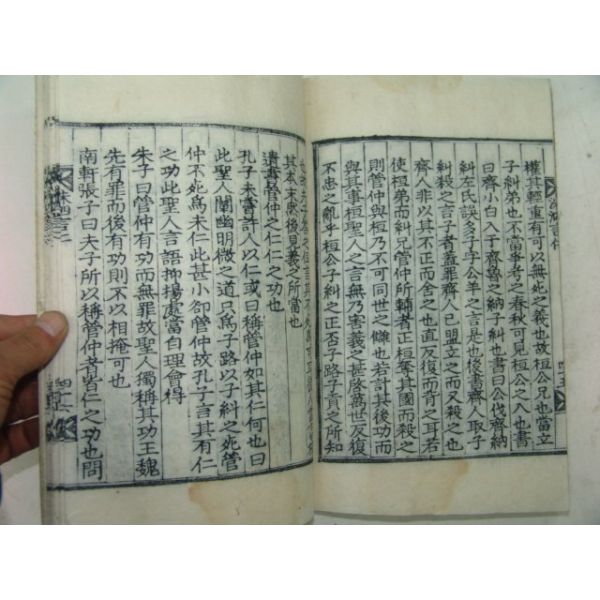 權其輕重有可以無死之義也故桓公兄也當立
子糾弟也不當爭者之春秋可見桓公之入也書
曰齊小白入于齊魯之納子糾也書曰公伐齊納
糾左氏誤多子字公羊之言是也後書齊人取子
糾殺之言子者蓋罪齊人已盟立之而又殺之也
齊人非以其不正而舍之也直反復而背之耳若
使桓弟而糾兄管仲所輔者正桓奪其國而殺之
則管仲與桓乃不可同世之讎也若計其後功而
與其事桓聖人之言無乃害義之甚啓萬世反復
不忠之亂乎桓公子糾之正否子路子貢所知
其本末然後見義之所當也
遺書管仲之仁仁之功也
孔子未嘗許人以仁或曰稱管仲如其仁何也曰
此聖人闡幽明微之道只爲子路以子糾之死管
仲不死爲未仁此甚小卻管仲故孔子言其有仁
之功此聖人言語抑揚處當自理會得
朱子曰管仲有功而無罪故聖人獨稱其功王魏
先有罪而後有功則不以相掩可也
南軒張子曰夫子所以稱管仲者皆仁之功也問